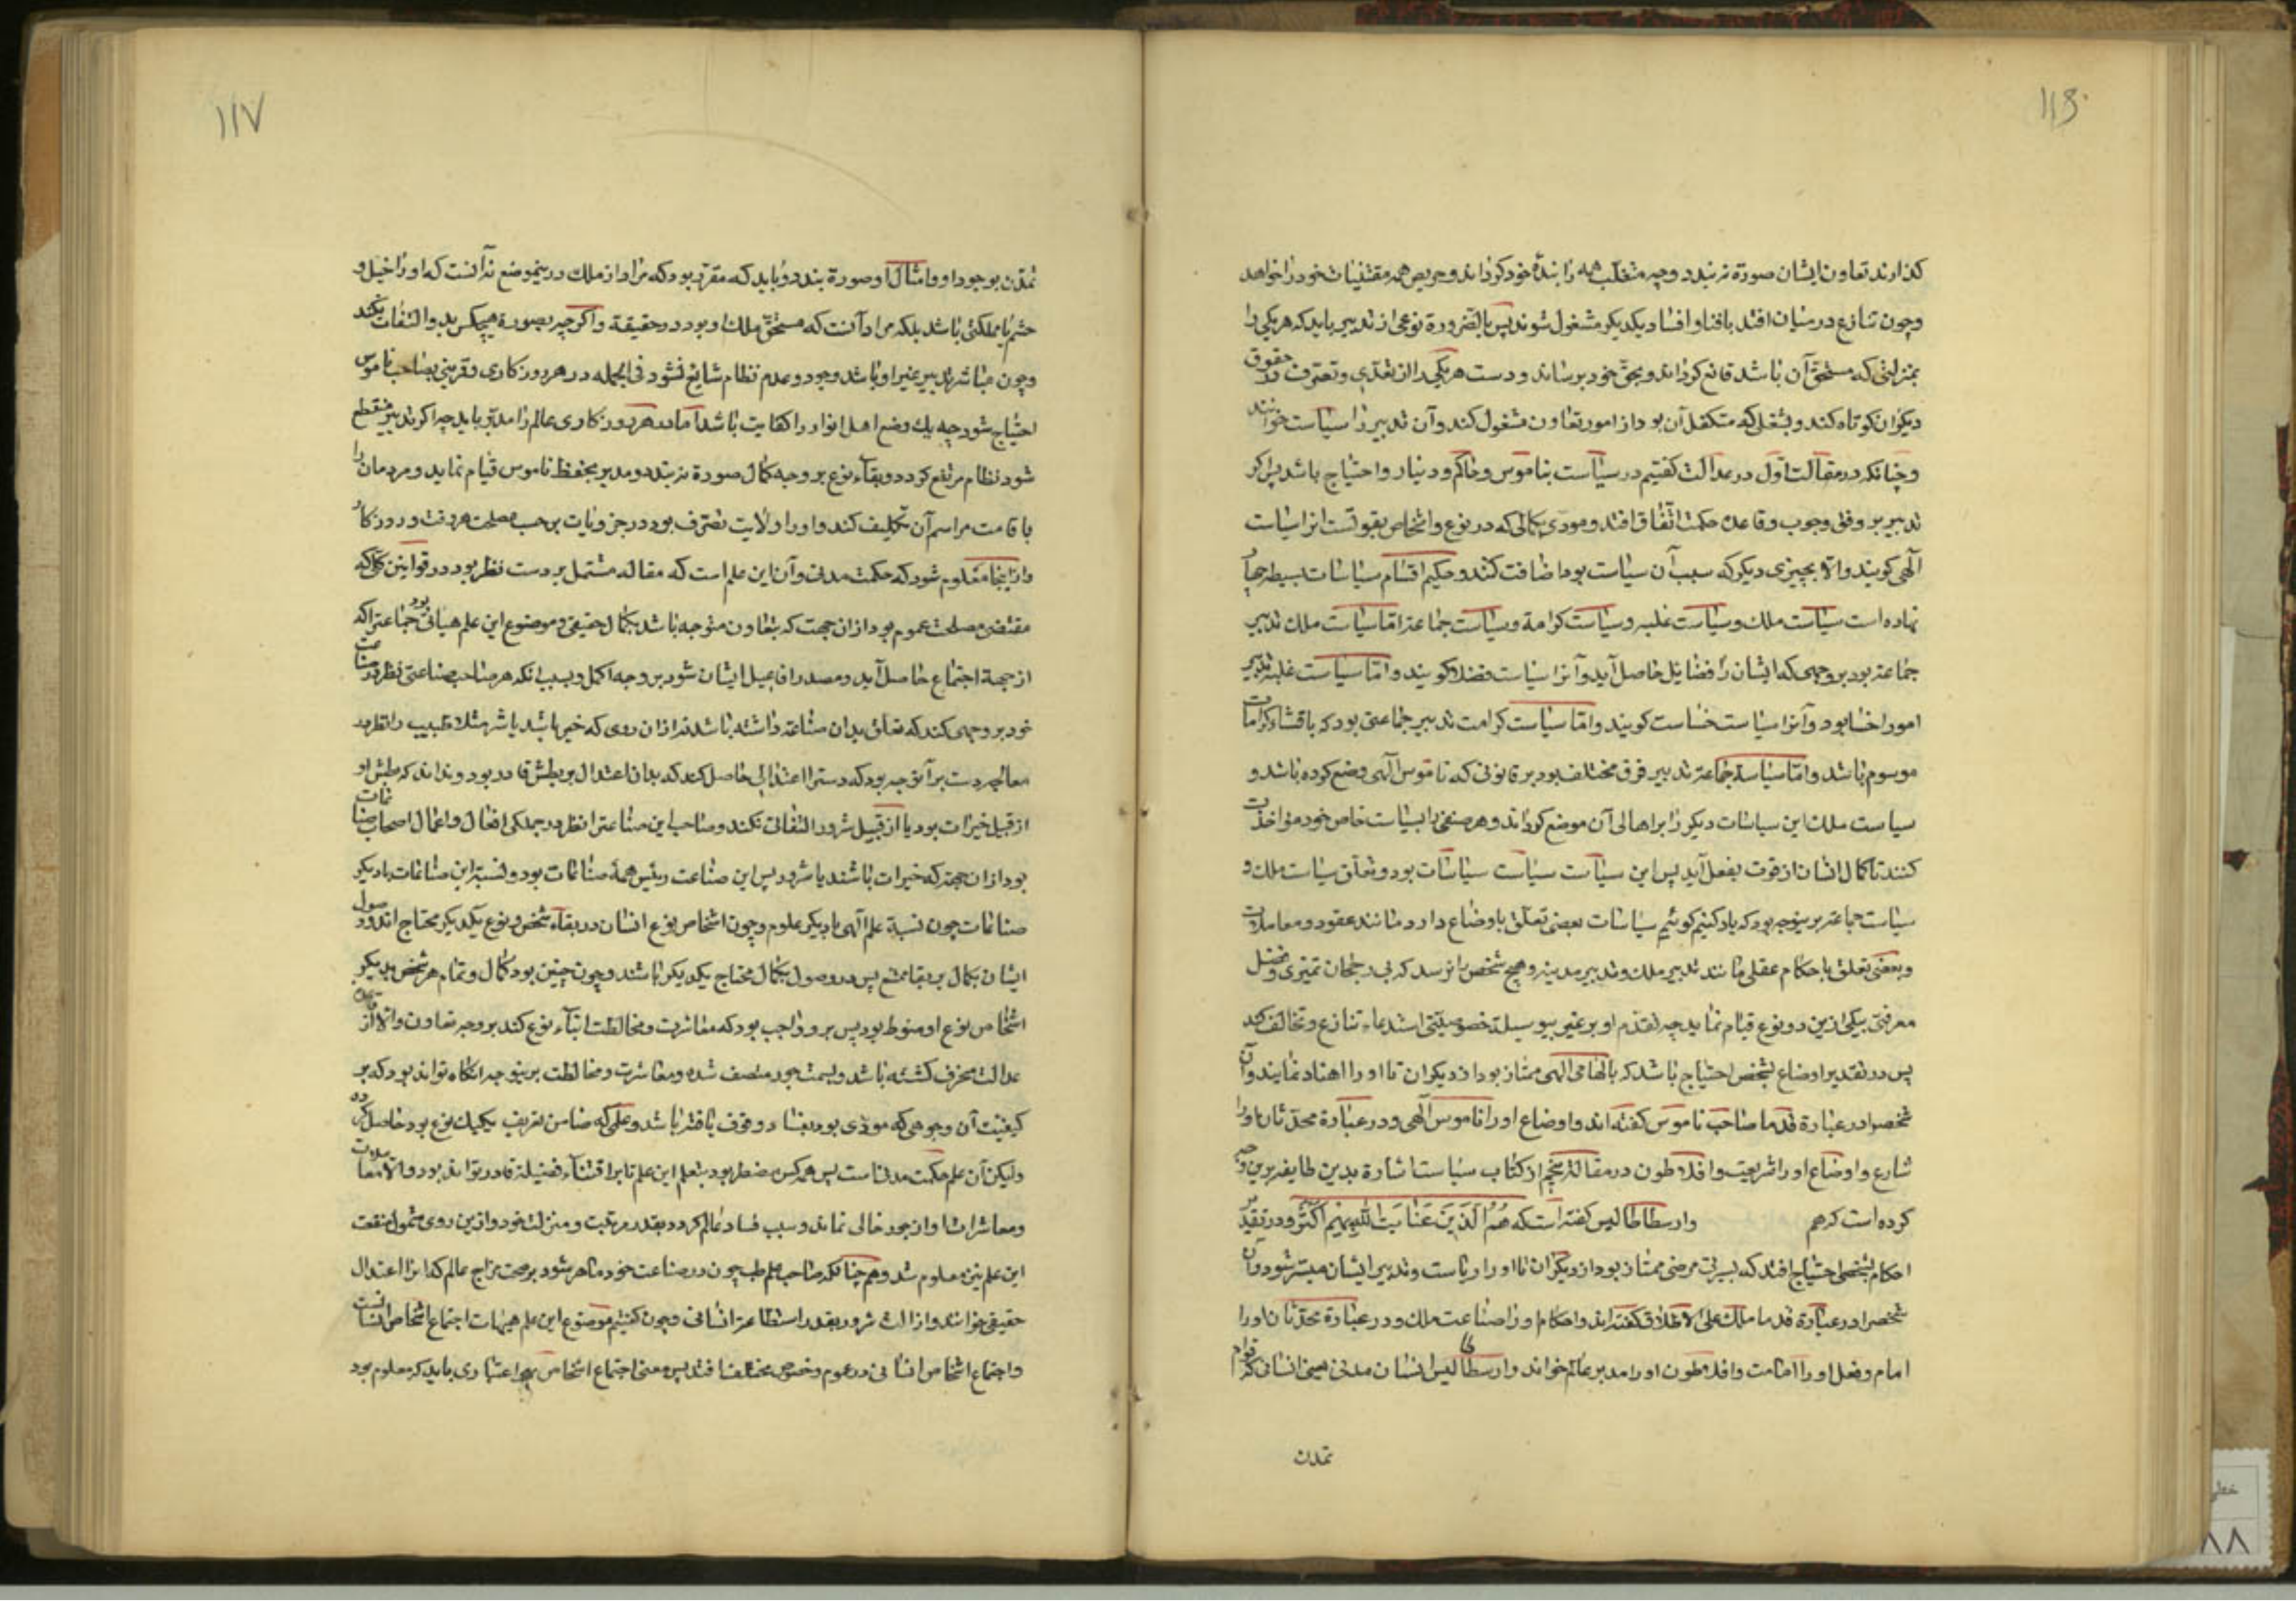 ۱۱۶
کذارند تعاون ایشان صورة نه بندد و چه متغلب همه را بندهٔ خود کرداند و حریص همه مقتنیات خود را خواهد
و چون تنازع در میان افتد بافنا و افساد یکدیکر مشغول شوند پس بالضرورة نوعی از تدبیر باید که هر یکی را
بمنزلتی که مستحق آن باشد قانع کرداند و بحق خود برساند و دست هر یکی را از تعدی و تصرف در حقوق
دیکران کوتاه کند و بشغلی که متکفل آن بود از امور تعاون مشغول کند و آن تدبیر را سیاست خوانند
و چنانکه در مقالت اول در عدالت کفتیم در سیاست بناموس و حاکم و دینار و احتیاج باشد پس اکر
تدبیر بر وفق وجوب و قاعدهٔ حکمت اتفاق افتد و مودی بکمالی که در نوع و اشخاص بقوتست انرا سیاست
آلهی کویند و الا بچیزی دیکر که سبب آن سیاست بود اضافت کنند و حکیم اقسام سیاسات بسیطه چهار
نهاده است سیاست ملک و سیاست غلبه و سیاست کرامة و سیاست جماعة اما سیاست ملک تدبیر
جماعة بود بر وجهی که ایشان را فضایل حاصل آید و آنرا سیاست فضلا کویند و اما سیاست غلبه تدبیر
امور اخسا بود و آنرا سیاست خساست کویند و اما سیاست کرامت تدبیر جماعتی بود که باقتناء کرامات
موسوم باشد و اما سیاسة جماعة تدبیر فرق مختلف بود بر قانونی که ناموس آلهی وضع کرده باشد و
سیاست ملک این سیاسات دیکر را بر اهالی آن موضع کرداند و هر صنفی را بسیاست خاص خود مؤاخذت
کنند تا کمال انشان از قوت بفعل آید پس این سیاست سیاست سیاسات بود و تعلق سیاست ملک و
سیاست جماعة برینوجه بود که یاد کنیم کوئیم سیاسات بعضی تعلق باوضاع دارد مانند عقود و معاملات
و بعضی تعلق باحکام عقلی مانند تدبیر ملک و تدبیر مدینه و هیچ شخص را نرسد که بی رجحان تمیزی و فضل
معرفتی بیکی ازین دو نوع قیام نماید چه تقدم او بر غیر بی وسیلهٔ خصوصیتی استدعاء تنازع و تخالف کند
پس در تقدیر اوضاع بشخصی احتیاج باشد که بالهامی آلهی ممتاز بود از دیکران تا او را انقیاد نمایند و آن
شخصرا در عبارة قدما صاحب ناموس کفته اند و اوضاع او را ناموس آلهی و در عبارة محدثان او را
شارع و اوضاع او را شریعت و افلاطون در مقالهٔ پنجم از کتاب سیاست اشارة بدین طایفه برین وجه
کرده است که هم وارسطاطالیس کفته است که هم الذین عنایت الله بهم اکثر و در تقدیر
احکام بشخصی احتیاج افتد که بسیرتی مرضی ممتاز بود از دیکران تا او را ریاست و تدبیر ایشان میسر شود و آن
شخصرا در عبارة قدما ملک علی الاطلاق کفته اند و احکام او را صناعت ملک و در عبارة محدثان او را
امام و فعل او را امامت و افلاطون او را مدبر عالم خواند و ارسطاطالیس انسان مدنی یعنی انسانی که قوام
تمدن
۱۱۷
تمدن بوجود او و امثال او صورة بندد و باید که مقرر بود که مراد از ملک درینموضع نه آنست که او را خیل و
حشم یا مملکتی باشد بلکه مراد آنست که مستحق ملک او بود در حقیقة و اکر چه بصورة هیچکس بدو التفات نکند
و چون مباشر تدبیر غیر او باشد وجود و عدم نظام شایع نشود فی الجمله در هر روزکاری و قرنی بصاحب ناموس
احتیاج نبود چه یک وضع اهل ادوار را کفایت باشد اما در هر روزکاری عالم را مدبر باید چه اکر تدبیر منقطع
شود نظام مرتفع کردد و بقاء نوع بر وجه کمال صورة نه بندد و مدبر بحفظ ناموس قیام نماید و مردمان را
باقامت مراسم آن تکلیف کند و او را ولایت تصرف بود در جزویات بر حسب مصلحت هر وقت و روزکار
و از اینجا معلوم شود که حکمت مدنی و آن این علم است که مقاله مشتمل بر دست نظر بود در قوانین کلی که
مقتضی مصلحت عموم بود از ان جهت که بتعاون متوجه باشند بکمال حقیقی و موضوع این علم هیاتی بود جماعترا که
از جهة اجتماع حاصل آید و مصدر افاعیل ایشان شود بر وجه اکمل و بسبب انکه هر صاحب صناعتی نظر در صناعت
خود بر وجهی کند که تعلق بدان صناعة داشته باشد نه از ان روی که خیر باشد یا شر مثلا طبیب را نظر در
معالجه دست برآنوجه بود که دسترا اعتدالی حاصل کند که بدان اعتدال بر بطش قادر بود و نداند که بطش او
از قبیل خیرات بود یا از قبیل شرور التفاتی نکند و صاحب این صناعترا نظر در جملکی افعال و اعمال اصحاب صناعات
بود از ان جهتکه خیرات باشند یا شرور پس این صناعت رئیس همهٔ صناعات بود و نسبة این صناعات با دیکر
صناعات چون نسبة علم آلهی با دیکر علوم و چون اشخاص نوع انسان در بقاء شخص و نوع بیکدیکر محتاج اند و وصول
ایشان بکمال بی بقا ممتنع پس در وصول بکمال محتاج یکدیکر باشند و چون چنین بود کمال و تمام هر شخص بدیکر
اشخاص نوع او منوط بود پس برو واجب بود که معاشرت و مخالطت ابناء نوع کند بر وجه تعاون و الا از
عدالت محرف کشته باشد و بسمت جور متصف شده و معاشرت و مخالطت برینوجه انکاه تواند بود که بر
کیفیت آن و وجوهی که مودی بود بفساد وقوف یافته باشد و علمی که ضامن تعریف یکیک نوع بود حاصل کرده
ولیکن آن علم حکمت مدنیست پس همه کس مضطر بود بتعلم این علم تا بر اقتناء فضیلة قادر تواند بود و الا معاملات
و معاشرات او از جور خالی نماند و سبب فساد عالم کردد بقدر مرتبت و منزلت خود و ازین روی شمول منفعت
این علم نیز معلوم شد و هم چنانکه صاحب علم طب چون در صناعت خود ماهر شود بر صحت مزاج عالم که انرا اعتدال
حقیقی خوانند و ازالت شرور بقدر استطاعة انسانی و چون کفتیم موضوع این علم هیات اجتماع اشخاص انسانیست
و اجتماع اشخاص انسانی در عموم و خصوص مختلف افتد پس معنی اجتماع اشخاص بهر اعتباری باید که معلوم بود